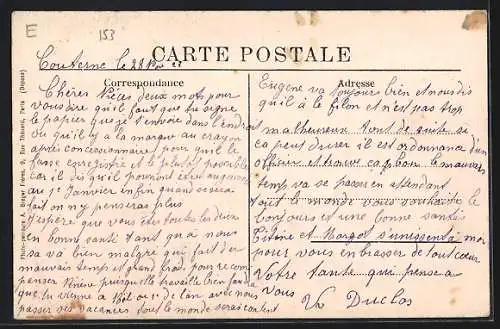 E
153
Couterne le 28
CARTE POSTALE
Correspondance
Adresse
Chères Nièces deux mots pour
vous dire qu'il faut que tu signe
le papier que je t'envoie dans l'endroit
ou qu'il y a la marque au crayon
après concessionnaire pour qu'il le
fasse enregistré et le plutot possible
car il dis qu'il pourrient être augmenté
au 1er Janvier enfin quand se sera
fait on n'y pensera plus
J'espère que vous êtes toutes les deux
en bonne santé tant qu'a nous
sa va bien malgré qu'il fait du
mauvais temps et grand froid pour recom
penser Néneu puisquelle travaille bien faudra
que tu vienne a l'an avec nous
passer ses vacances tous le monde serais content
Eugène va toujour bien et nous dis
qu'il a le filon et n'est pas trop
malheureux tout de suite si
ca peu durer il est ordonnance d'un
officier et trouve ca bon le mauvais
temp va se passer en attendant
tout le monde vous souhaite le
bonjours et une bonne santé
Titine et Margot s'unissent à moi
pour vous embrasser de tout cœur
Votre tante qui pense a
vous Vve Duclos